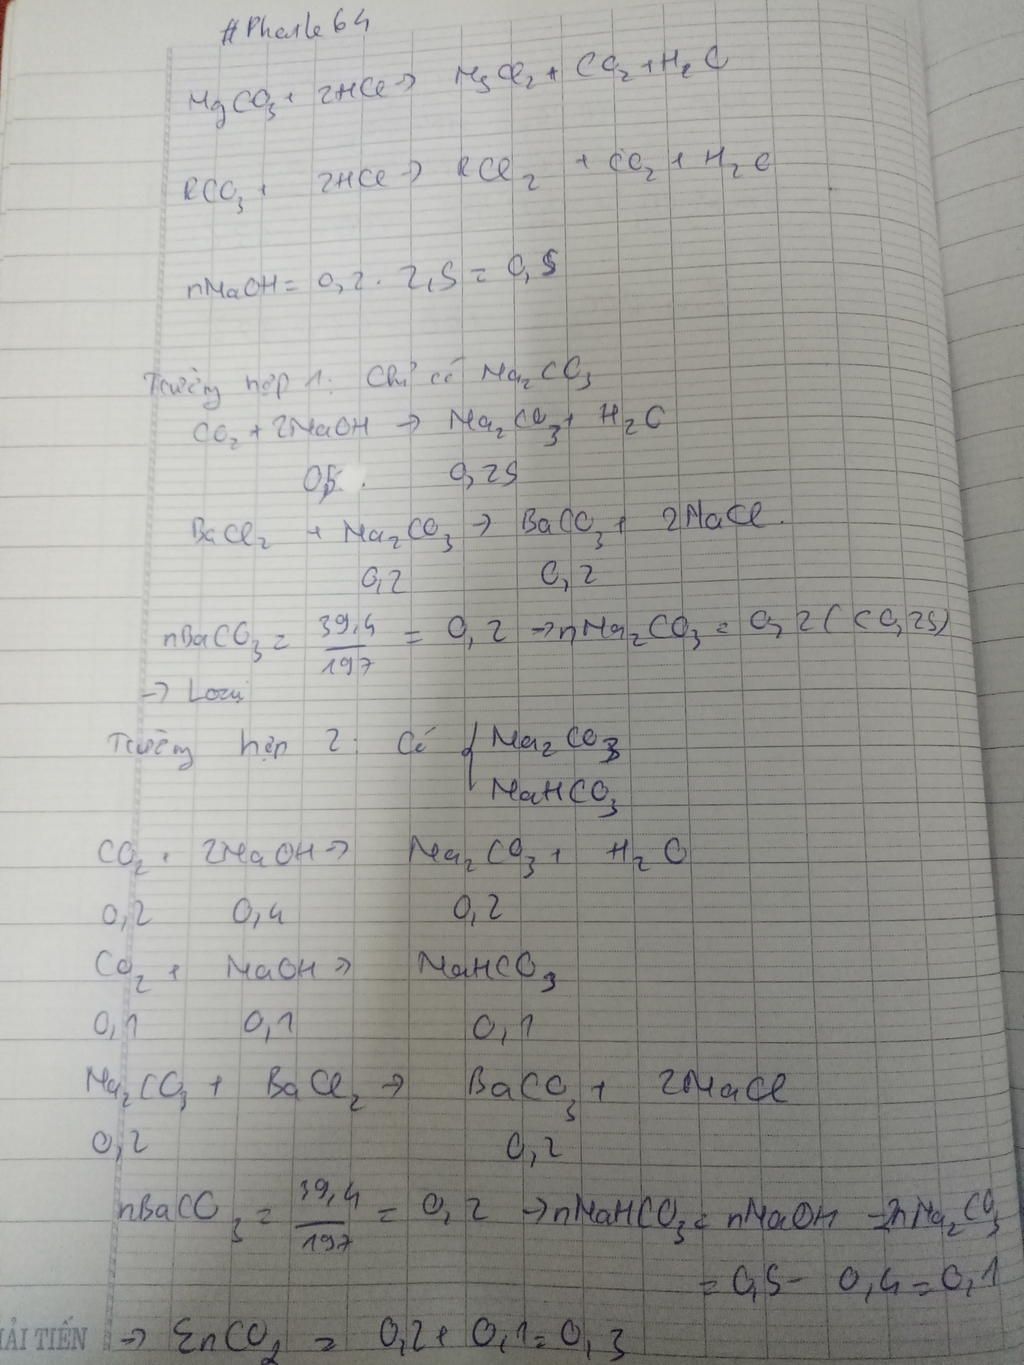 #Pharle64
MgCO₃ + 2HCl → MgCl₂ + CO₂ + H₂O
RCO₃ + 2HCl → RCl₂ + CO₂ + H₂O
nNaOH = 0,2 . 2,5 = 0,5
Trường hợp 1: Chỉ có Na₂CO₃
CO₂ + 2NaOH → Na₂CO₃ + H₂O
0,5 0,25
BaCl₂ + Na₂CO₃ → BaCO₃ + 2NaCl
0,2 0,2
nBaCO₃ = 39,4/197 = 0,2 → nNa₂CO₃ = 0,2 (<0,25)
→ Loại
Trường hợp 2: Có { Na₂CO₃
NaHCO₃
CO₂ + 2NaOH → Na₂CO₃ + H₂O
0,2 0,4 0,2
CO₂ + NaOH → NaHCO₃
0,1 0,1 0,1
Na₂CO₃ + BaCl₂ → BaCO₃ + 2NaCl
0,2 0,2
nBaCO₃ = 39,4/197 = 0,2 → nNaHCO₃ = nNaOH - 2nNa₂CO₃
= 0,5 - 0,4 = 0,1
→ ΣnCO₂ = 0,2 + 0,1 = 0,3
HẢI TIẾN